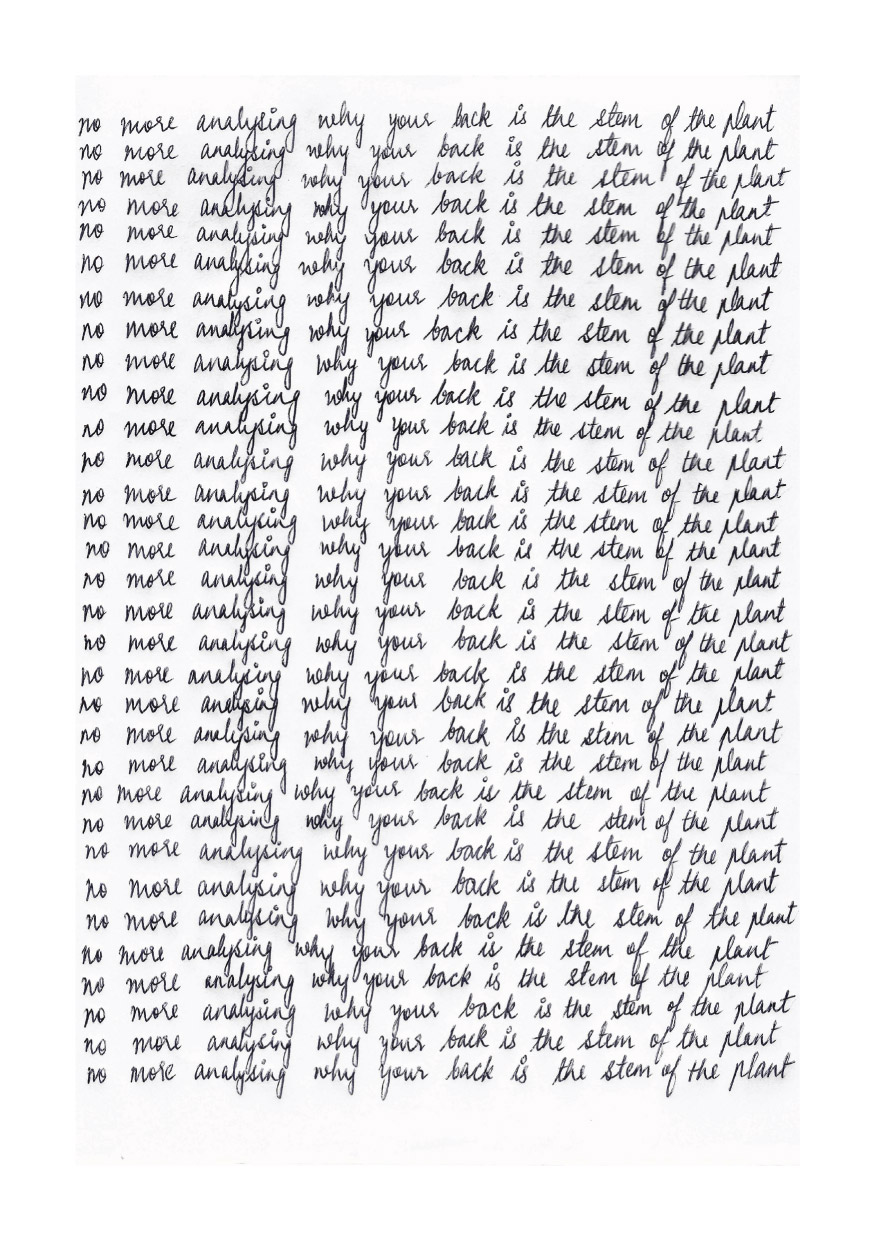 no more analysing why your back is the stem of the plant
no more analysing why your back is the stem of the plant
no more analysing why your back is the stem of the plant
no more analysing why your back is the stem of the plant
no more analysing why your back is the stem of the plant
no more analysing why your back is the stem of the plant
no more analysing why your back is the stem of the plant
no more analysing why your back is the stem of the plant
no more analysing why your back is the stem of the plant
no more analysing why your back is the stem of the plant
no more analysing why your back is the stem of the plant
no more analysing why your back is the stem of the plant
no more analysing why your back is the stem of the plant
no more analysing why your back is the stem of the plant
no more analysing why your back is the stem of the plant
no more analysing why your back is the stem of the plant
no more analysing why your back is the stem of the plant
no more analysing why your back is the stem of the plant
no more analysing why your back is the stem of the plant
no more analysing why your back is the stem of the plant
no more analysing why your back is the stem of the plant
no more analysing why your back is the stem of the plant
no more analysing why your back is the stem of the plant
no more analysing why your back is the stem of the plant
no more analysing why your back is the stem of the plant
no more analysing why your back is the stem of the plant
no more analysing why your back is the stem of the plant
no more analysing why your back is the stem of the plant
no more analysing why your back is the stem of the plant
no more analysing why your back is the stem of the plant
no more analysing why your back is the stem of the plant
no more analysing why your back is the stem of the plant